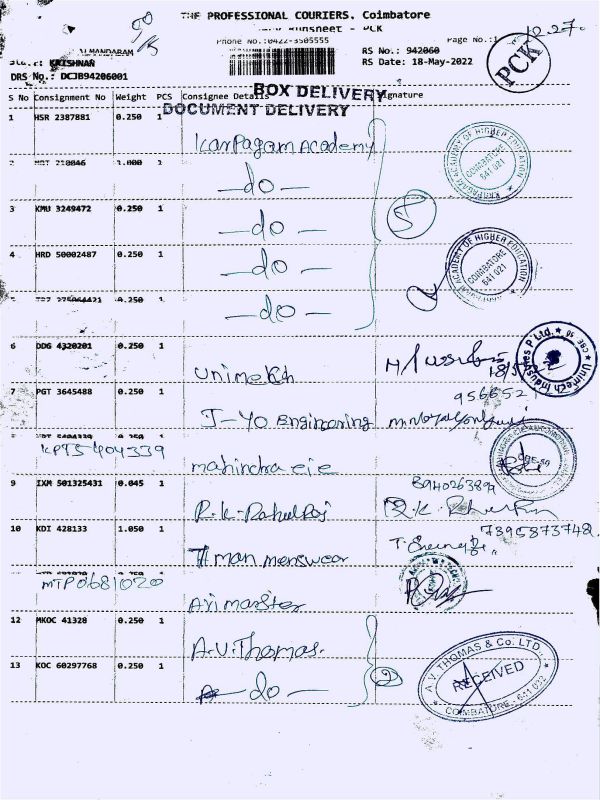 THE PROFESSIONAL COURIERS. Coimbatore
Runsheet - PCK
Phone No.:0422-3505555
Page No.:1
RS No.: 942060
RS Date: 18-May-2022
PCK
KRISHNAN
DRS No.: DCJB94206001
BOX DELIVERY
S No Consignment No Weight PCS Consignee Details Signature
DOCUMENT DELIVERY
1 HSR 2387881 0.250 1
Karpagam Academy
KARPAGAM ACADEMY OF HIGHER EDUCATION
COIMBATORE 641 021
1.000 1
- do -
3 KMU 3249472 0.250 1
- do -
5
4 HRD 50002487 0.250 1
- do -
ACADEMY OF HIGHER EDUCATION
COIMBATORE 641 021
0.250 1
- do -
6 DDG 4320201 0.250 1
Unimetch
18/5
Unitech Industries P Ltd.
7 PGT 3645488 0.250 1
956652
J-YO Engineering
mahindra eie
9 IXM 501325431 0.045 1
R.K. Rahul Raj
10 KDI 428133 1.050 1
7395873742
T man menswear
MTP0681020
Arimaster
12 MKOC 41328 0.250 1
A.V.Thomas.
13 KOC 60297768 0.250 1
- do -
2
A.V. THOMAS & Co. LTD.,
RECEIVED
COIMBATORE - 641 022